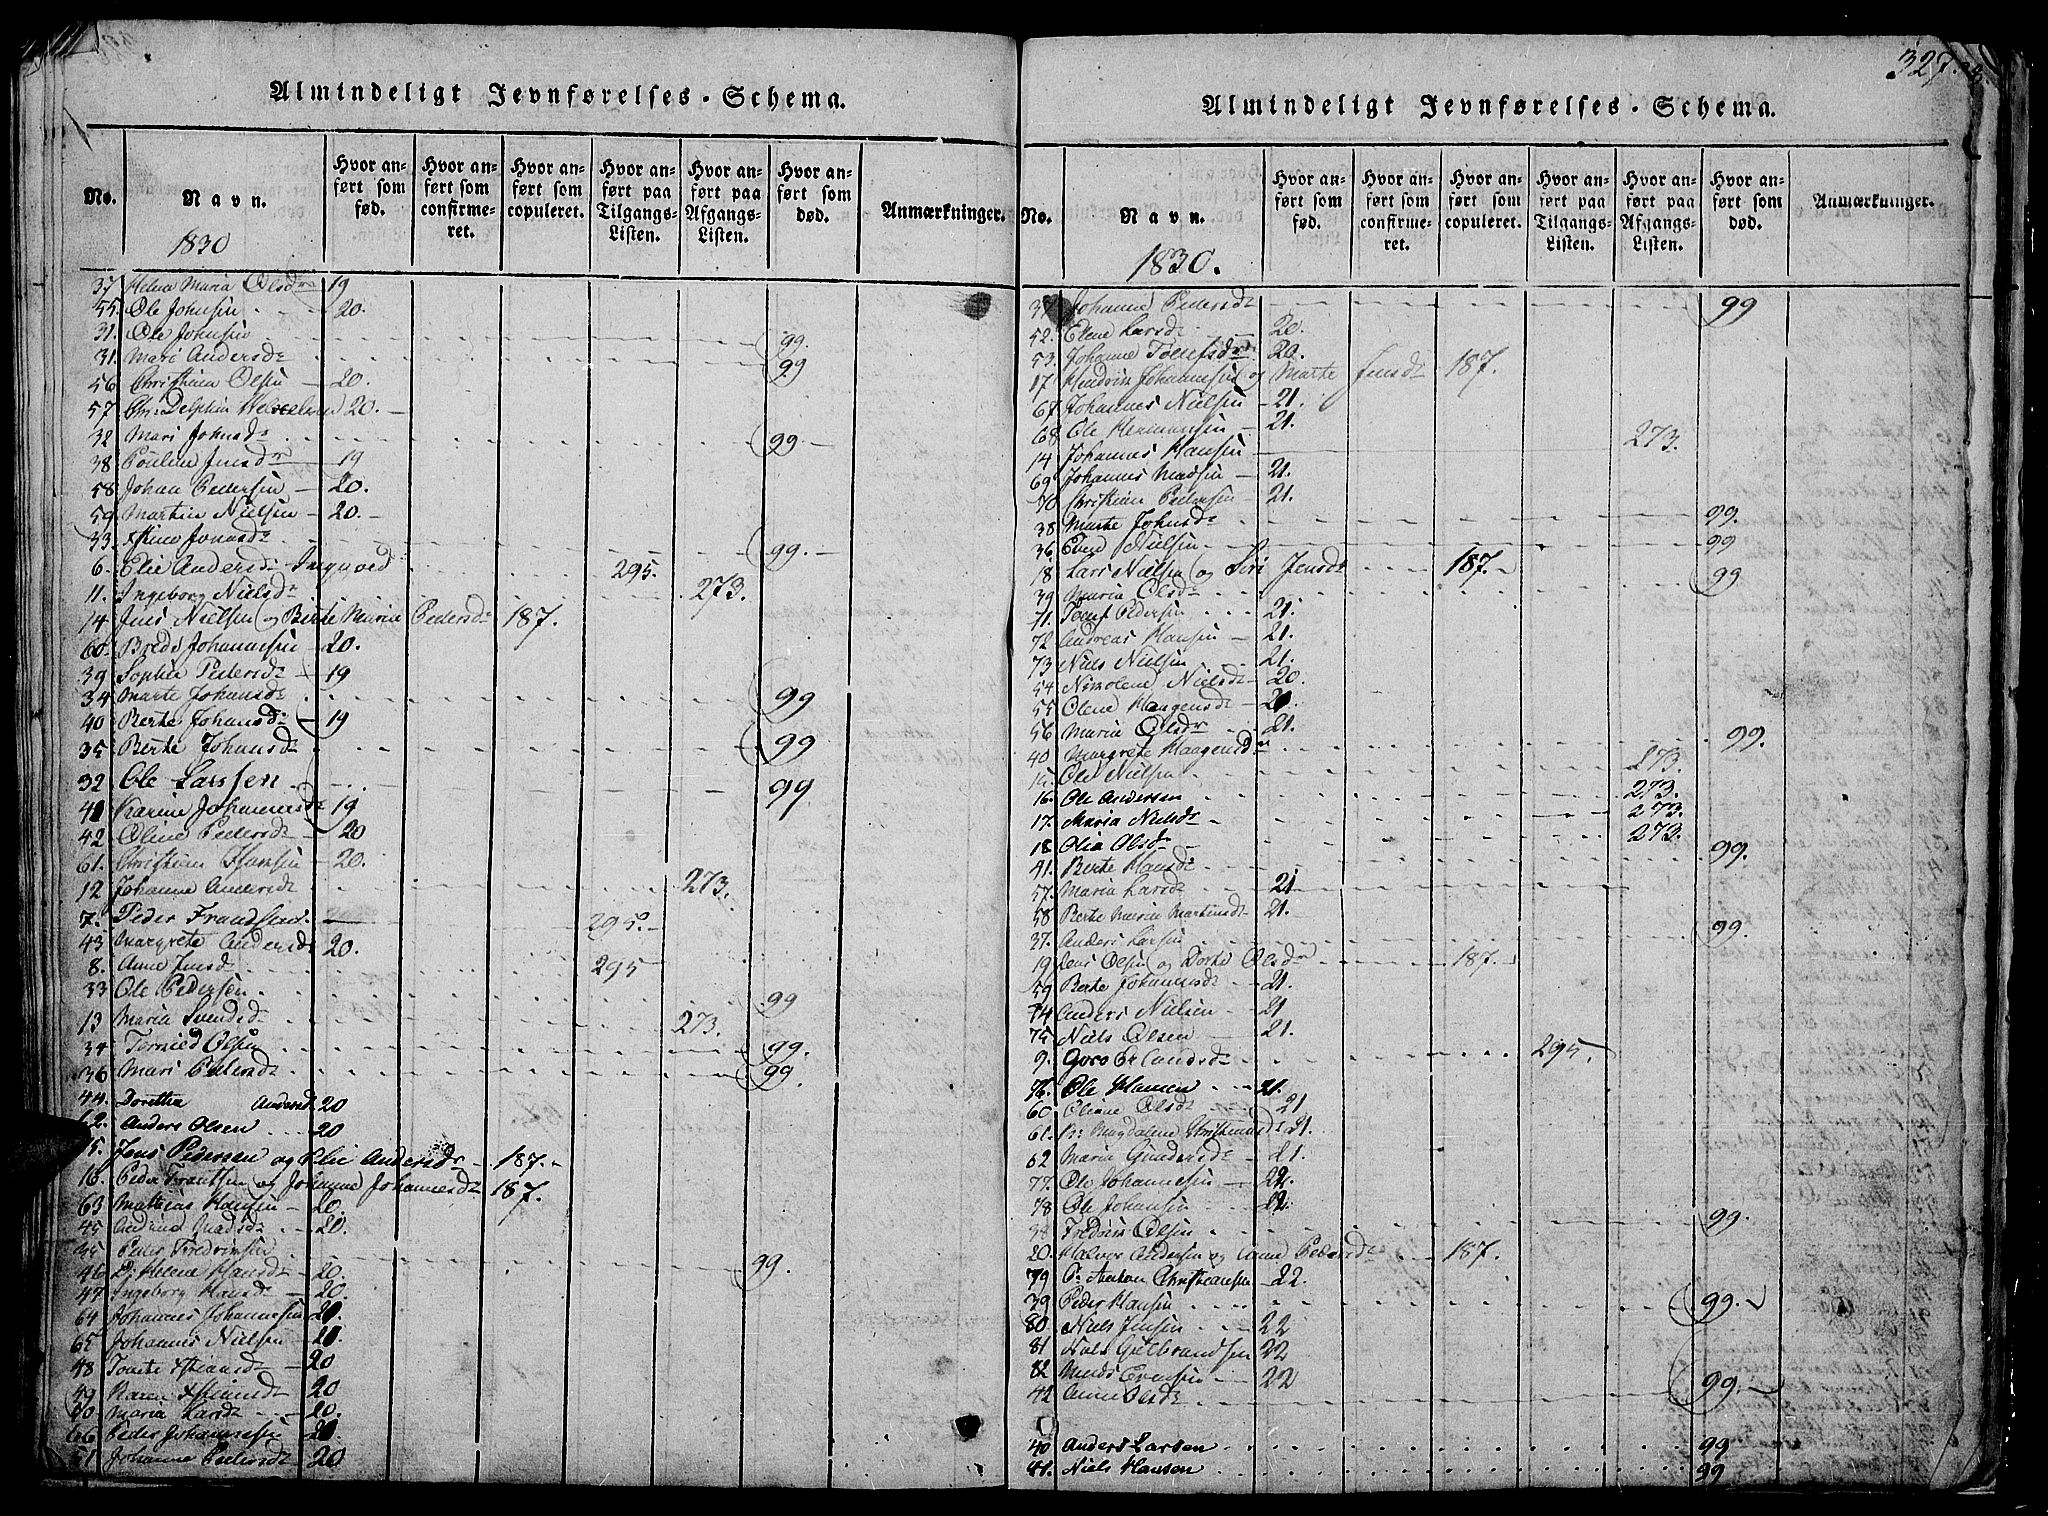 327.
Almindeligt Jevnførelses-Schema.
No. Navn. Hvor anført som fød. Hvor anført som confirmeret. Hvor anført som copuleret. Hvor anført paa Tilgangs-Listen. Hvor anført paa Afgangs-Listen. Hvor anført som død. Anmærkninger.
1830
37 Helena Maria Olsdr 19
55. Ole Johnsen 20.
31. Ole Johnsen 99.
31. Mari Andersdr 99
56 Christian Olsen 20.
57 20.
32 Mari Johnsdr 99
38 Pouline Jensdr 19
58 Johan Pedersen 20.
59 Martin Nielsen 20.
33. Stine Jonasdr 99.
6. Elie Andersdr 295.
11. Ingeborg Nielsdr 273.
14 Jens Nielsen og Birte Marie Pedersdr 187.
60. Brede Johannesen 20.
39 Sophie Pedersdr 19
34 Marte Johansdr 99
40 Berte Johansdr 19
35 Berte Johansdr 99
32 Ole Larssen 99
41 Karine Johannesdr 19
42 Oline Pedersdr 20
61. Christian Hansen 20.
12 Johanne Andersdr 273.
7. Peder Frandsen 295.
43 Margrete Andersdr 20.
8. Anne Jensd 295
33 Ole Pedersen 99
13 Maria Svendsdr 273.
34 Olsen 99.
36 Mari Pedersdr 99.
44. Dorethea Andersd 20
62. Anders Olsen 20
15. Jens Pedersen og Elie Andersdr 187.
16. Peder Frantsen og Johanne Johannesdr 187.
63 Mathias Hansen 20.
45 Andrine Madsdr 20.
35 Peder Fredriksen 99.
46 Helene Hansdr 20.
47 Ingeborg Hansdr 20.
64 Johannes Johannesen 20.
65 Johannes Nielsen 20
48 20
49 Karen 20
50 Maria Larsdr 20.
66 Peder Johannesen 20
51 Johanne Pedersdr 20
Almindeligt Jevnførelses-Schema.
No. Navn. Hvor anført som fød. Hvor anført som confirmeret. Hvor anført som copuleret. Hvor anført paa Tilgangs-Listen. Hvor anført paa Afgangs-Listen. Hvor anført som død. Anmærkninger.
1830.
37 Johanne Pedersdr 99
52. Elene Larsdr 20.
53. Johanne Tollefsdr 20.
17 Hendrik Johannesen og Marte Jensdr 187.
67. Johannes Nielsen 21.
68. Ole Hermansen 21.
14 Johannes Hansen 273.
69 Johannes Madsen 21.
70 Christian Pedersen 21.
38 Marte Johnsdr 99.
36 Even Nielsen 99
18 Lars Nielsen og Siri Jensdr 187.
39 Maria Olsdr 99
71. Pedersen 21.
72 Andreas Hansen 21.
73 Niels Nielsen 21.
54 Nikolene Nielsdr 20
55 Olene Haagensdr 20
56 Maria Olsdr 21.
40 Margrete Haagensdr 99.
15. Ole Nielsen 273.
16. Ole Andersen 273.
17. Maria Nielsdr 273.
18 Olia Olsdr 273.
41. Berte Hansdr 99.
57. Maria Larsdr 21
58 Berte Maria Martinsdr 21.
37. Anders Larsen 99.
19 Jens Olsen og Dorte Olsdr 187.
59 Berte Johannesdr 21.
74 Anders Nielsen 21
75 Niels Olsen 21.
9. Goro Erlandsdr 295.
76. Ole Hansen 21.
60 Oliane Olsdr 21
61. Magdalene Christiansdr 21.
62 Maria Gundersdr 21.
77. Ole Johannesen 22.
78 Ole Johansen 22.
38 Fredrik Olsen 99.
20. Halvor Andersen og Anne Pedersdr 187.
79 P. Anton Christiansen 22.
39 Peder Hansen 99.
80 Niels Jensen 22
81 Niels Gulbrandsen 22
82 Mads Evensen 22
42 Anne Olsdr 99.
40 Anders Larsen 99
41. Niels Hansen 99